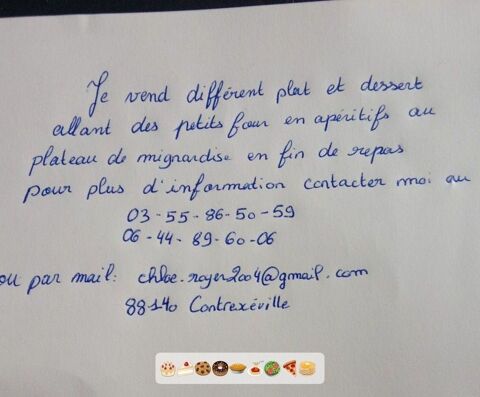 Je vend différent plat et dessert
allant des petits four en apéritifs au
plateau de mignardise en fin de repas
pour plus d'information contacter moi au
03-55-86-50-59
06-44-89-60-06
ou par mail: chloe.royer2004@gmail.com
88140 Contrexéville